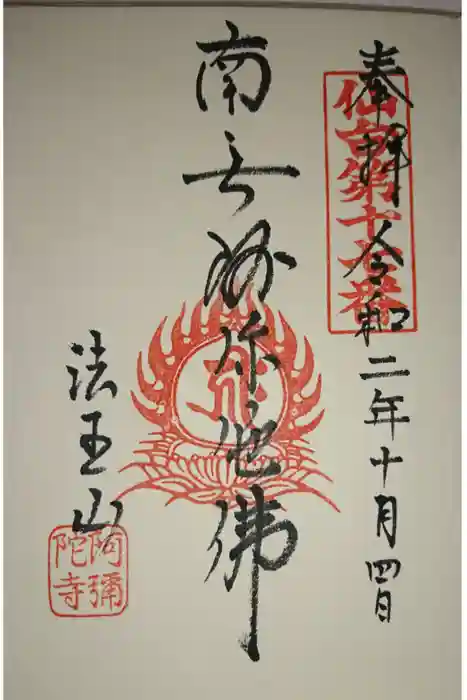 奉拝 令和二年十月四日
仙台第十七番
南无阿弥陀佛
法王山
阿彌
陀寺